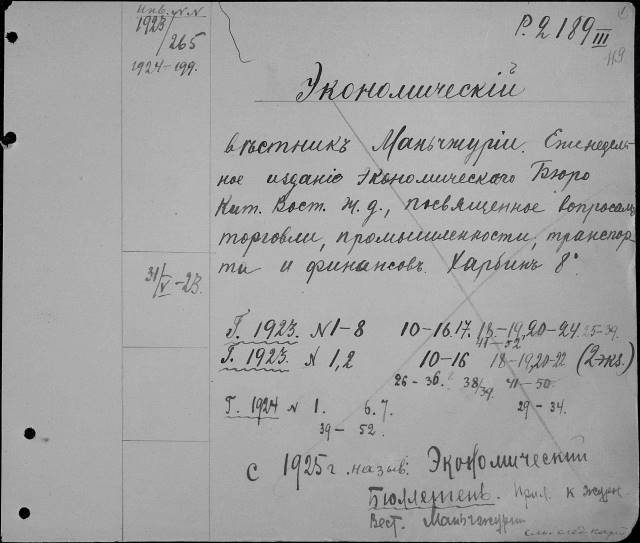 Инв. NN
1923/265
1924-199.
P.2189 III
119
Экономическiй
вѣстникъ Маньчжурiи. Еженедель-
ное изданiе Экономическаго Бюро
Кит. Вост. ж. д., посвященное вопросамъ
торговли, промышленности, транспор
та и финансовъ. Харбинъ 8°
31/V-23.
Г. 1923. N1-8 10-16.17. 18-19,20-24 25-39.
41-52
Г. 1923. N 1,2 10-16 18-19,20-22 (2 экз.)
26-36. 38/39. 41-50.
Г. 1924 N 1. 6.7. 29-34.
39-52.
с 1925 г. назыв: Экономический
Бюллетень. Прил. к журн.
Вест. Маньчжурии